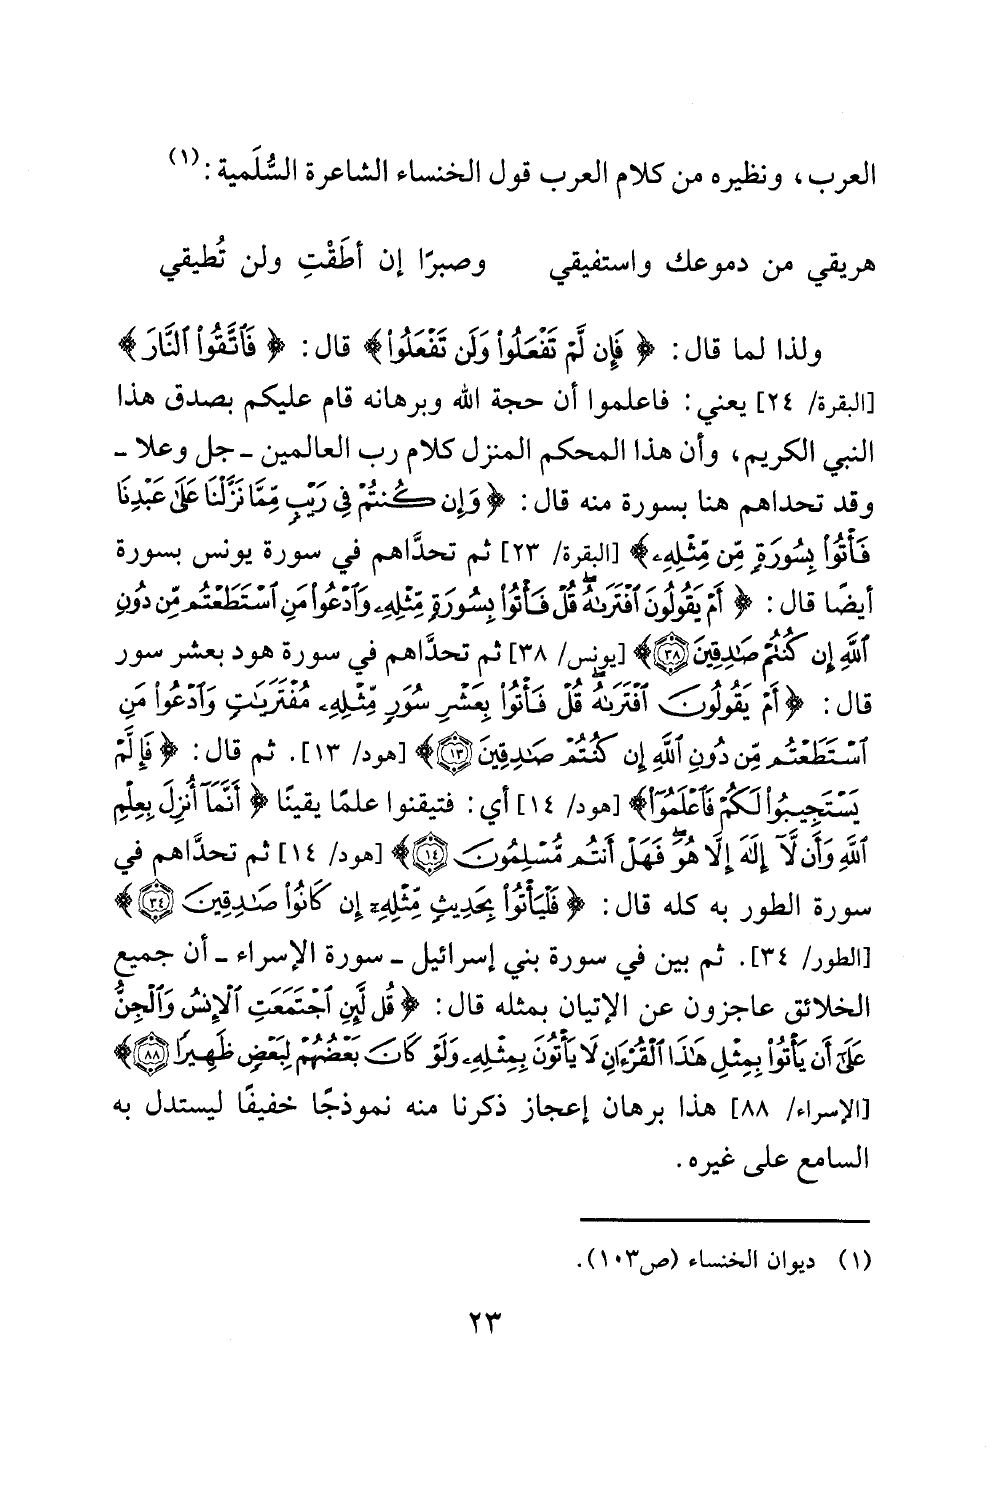 العرب، ونظيره من كلام العرب قول الخنساء الشاعرة السُّلَمية:(١)
هريقي من دموعك واستفيقي وصبرًا إن أطَقْتِ ولن تُطيقي
ولذا لما قال: ﴿ فَإِن لَّمْ تَفْعَلُوا۟ وَلَن تَفْعَلُوا۟﴾ قال: ﴿ فَٱتَّقُوا۟ ٱلنَّارَ ﴾
[البقرة/ ٢٤] يعني: فاعلموا أن حجة الله وبرهانه قام عليكم بصدق هذا
النبي الكريم، وأن هذا المحكم المنزل كلام رب العالمين ـ جل وعلا ـ
وقد تحداهم هنا بسورة منه قال: ﴿ وَإِن كُنتُمْ فِى رَيْبٍ مِّمَّا نَزَّلْنَا عَلَىٰ عَبْدِنَا
فَأْتُوا۟ بِسُورَةٍ مِّن مِّثْلِهِۦ﴾ [البقرة/ ٢٣] ثم تحدَّاهم في سورة يونس بسورة
أيضًا قال: ﴿ أَمْ يَقُولُونَ ٱفْتَرَىٰهُ ۖ قُلْ فَأْتُوا۟ بِسُورَةٍ مِّثْلِهِۦ وَٱدْعُوا۟ مَنِ ٱسْتَطَعْتُم مِّن دُونِ
ٱللَّهِ إِن كُنتُمْ صَـٰدِقِينَ ٣٨﴾ [يونس/ ٣٨] ثم تحدَّاهم في سورة هود بعشر سور
قال: ﴿ أَمْ يَقُولُونَ ٱفْتَرَىٰهُ ۖ قُلْ فَأْتُوا۟ بِعَشْرِ سُوَرٍ مِّثْلِهِۦ مُفْتَرَيَـٰتٍ وَٱدْعُوا۟ مَنِ
ٱسْتَطَعْتُم مِّن دُونِ ٱللَّهِ إِن كُنتُمْ صَـٰدِقِينَ ١٣﴾ [هود/ ١٣]. ثم قال: ﴿ فَإِلَّمْ
يَسْتَجِيبُوا۟ لَكُمْ فَٱعْلَمُوٓا۟﴾ [هود/ ١٤] أي: فتيقنوا علمًا يقينًا ﴿ أَنَّمَآ أُنزِلَ بِعِلْمِ
ٱللَّهِ وَأَن لَّآ إِلَـٰهَ إِلَّا هُوَ ۖ فَهَلْ أَنتُم مُّسْلِمُونَ ١٤﴾ [هود/ ١٤] ثم تحدَّاهم في
سورة الطور به كله قال: ﴿ فَلْيَأْتُوا۟ بِحَدِيثٍ مِّثْلِهِۦٓ إِن كَانُوا۟ صَـٰدِقِينَ ٣٤﴾
[الطور/ ٣٤]. ثم بين في سورة بني إسرائيل ـ سورة الإسراء ـ أن جميع
الخلائق عاجزون عن الإتيان بمثله قال: ﴿ قُل لَّئِنِ ٱجْتَمَعَتِ ٱلْإِنسُ وَٱلْجِنُّ
عَلَىٰٓ أَن يَأْتُوا۟ بِمِثْلِ هَـٰذَا ٱلْقُرْءَانِ لَا يَأْتُونَ بِمِثْلِهِۦ وَلَوْ كَانَ بَعْضُهُمْ لِبَعْضٍ ظَهِيرًا ٨٨﴾
[الإسراء/ ٨٨] هذا برهان إعجاز ذكرنا منه نموذجًا خفيفًا ليستدل به
السامع على غيره.
(١) ديوان الخنساء (ص١٠٣).
٢٣